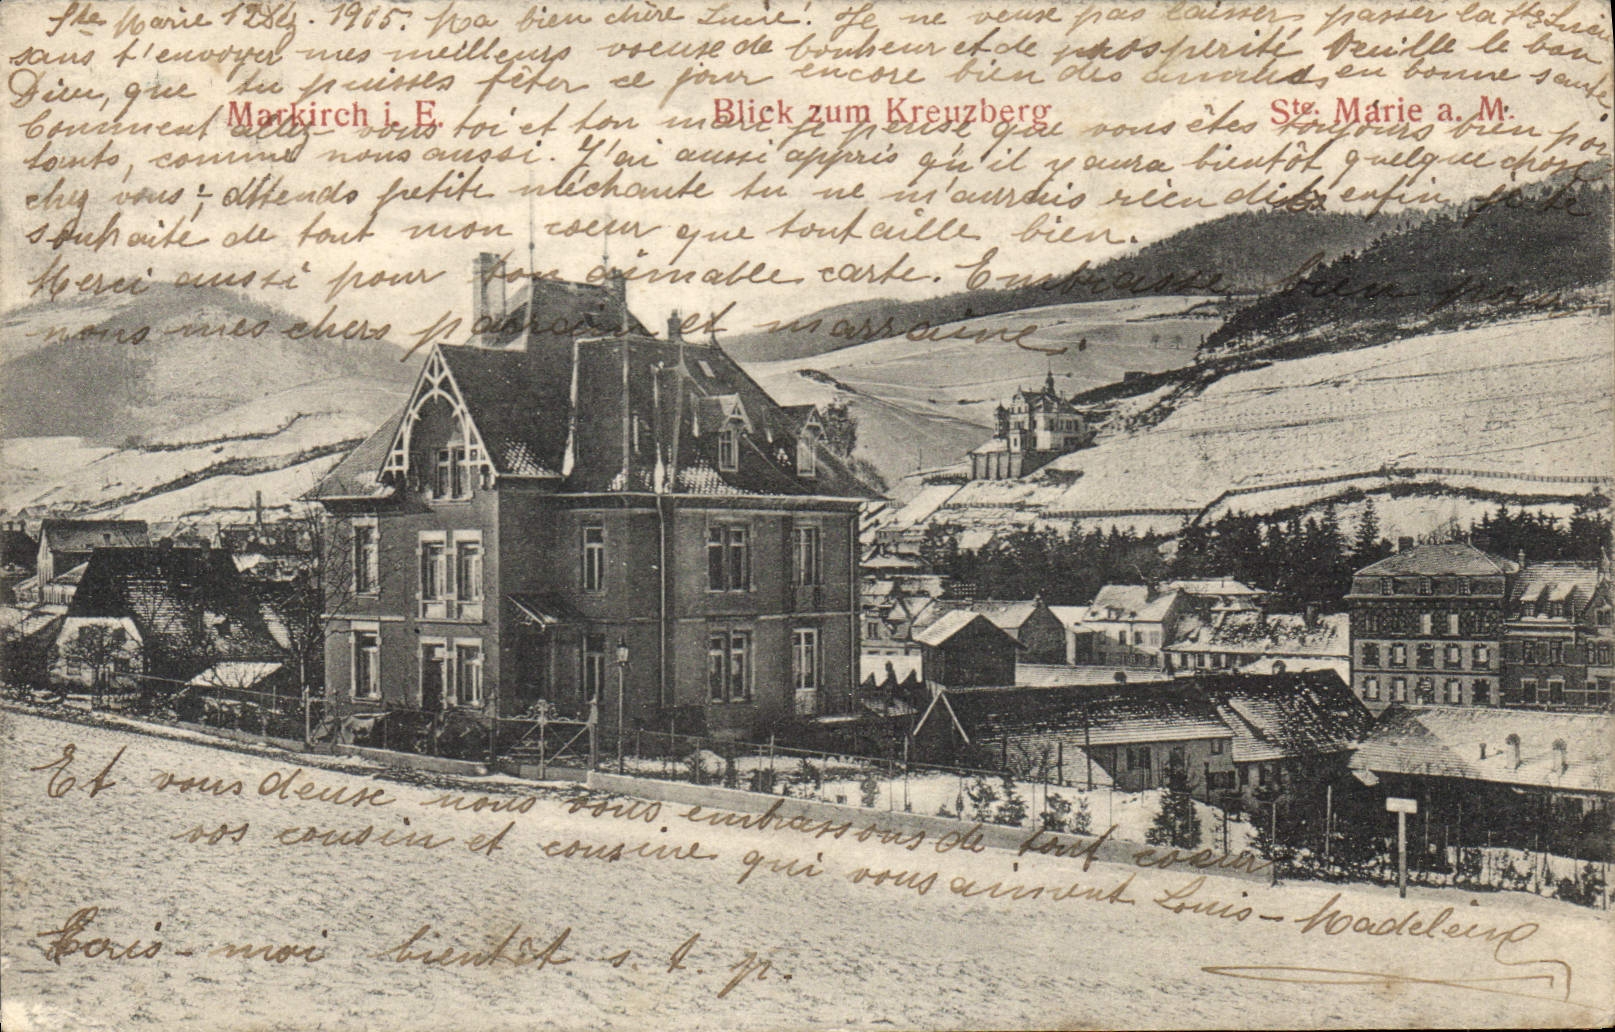 Ste Marie 12 Déc. 1905. Ma bien chère Lucie! Je ne veux pas laisser passer la Ste Lucie
sans t'envoyer mes meilleurs voeux de bonheur et de prospérité Veuille le bon
Dieu, que tu puisses fêter ce jour encore bien des années, en bonne santé,
Markirch i. E. Blick zum Kreuzberg Ste. Marie a. M.
Comment allez vous toi et ton mari je pense que vous êtes toujours bien por
tants, comme nous aussi. J'ai aussi appris qu'il y aura bientôt quelque chose
chez vous; attends petite méchante tu ne m'aurais rien dit enfin je te
souhaite de tout mon coeur que tout aille bien.
Merci aussi pour ton aimable carte. Embrasse bien pour
nous mes chers parrain et marraine.
Et vous deux nous vous embrassons de tout coeur
vos cousin et cousine qui vous aiment Louis - Madeleine
Ecris-moi bientôt s. t. p.